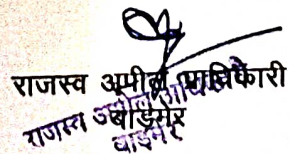 राजस्व अपील प्राधिकारी
बाड़मेर
राजस्व अपील
बाड़मेर